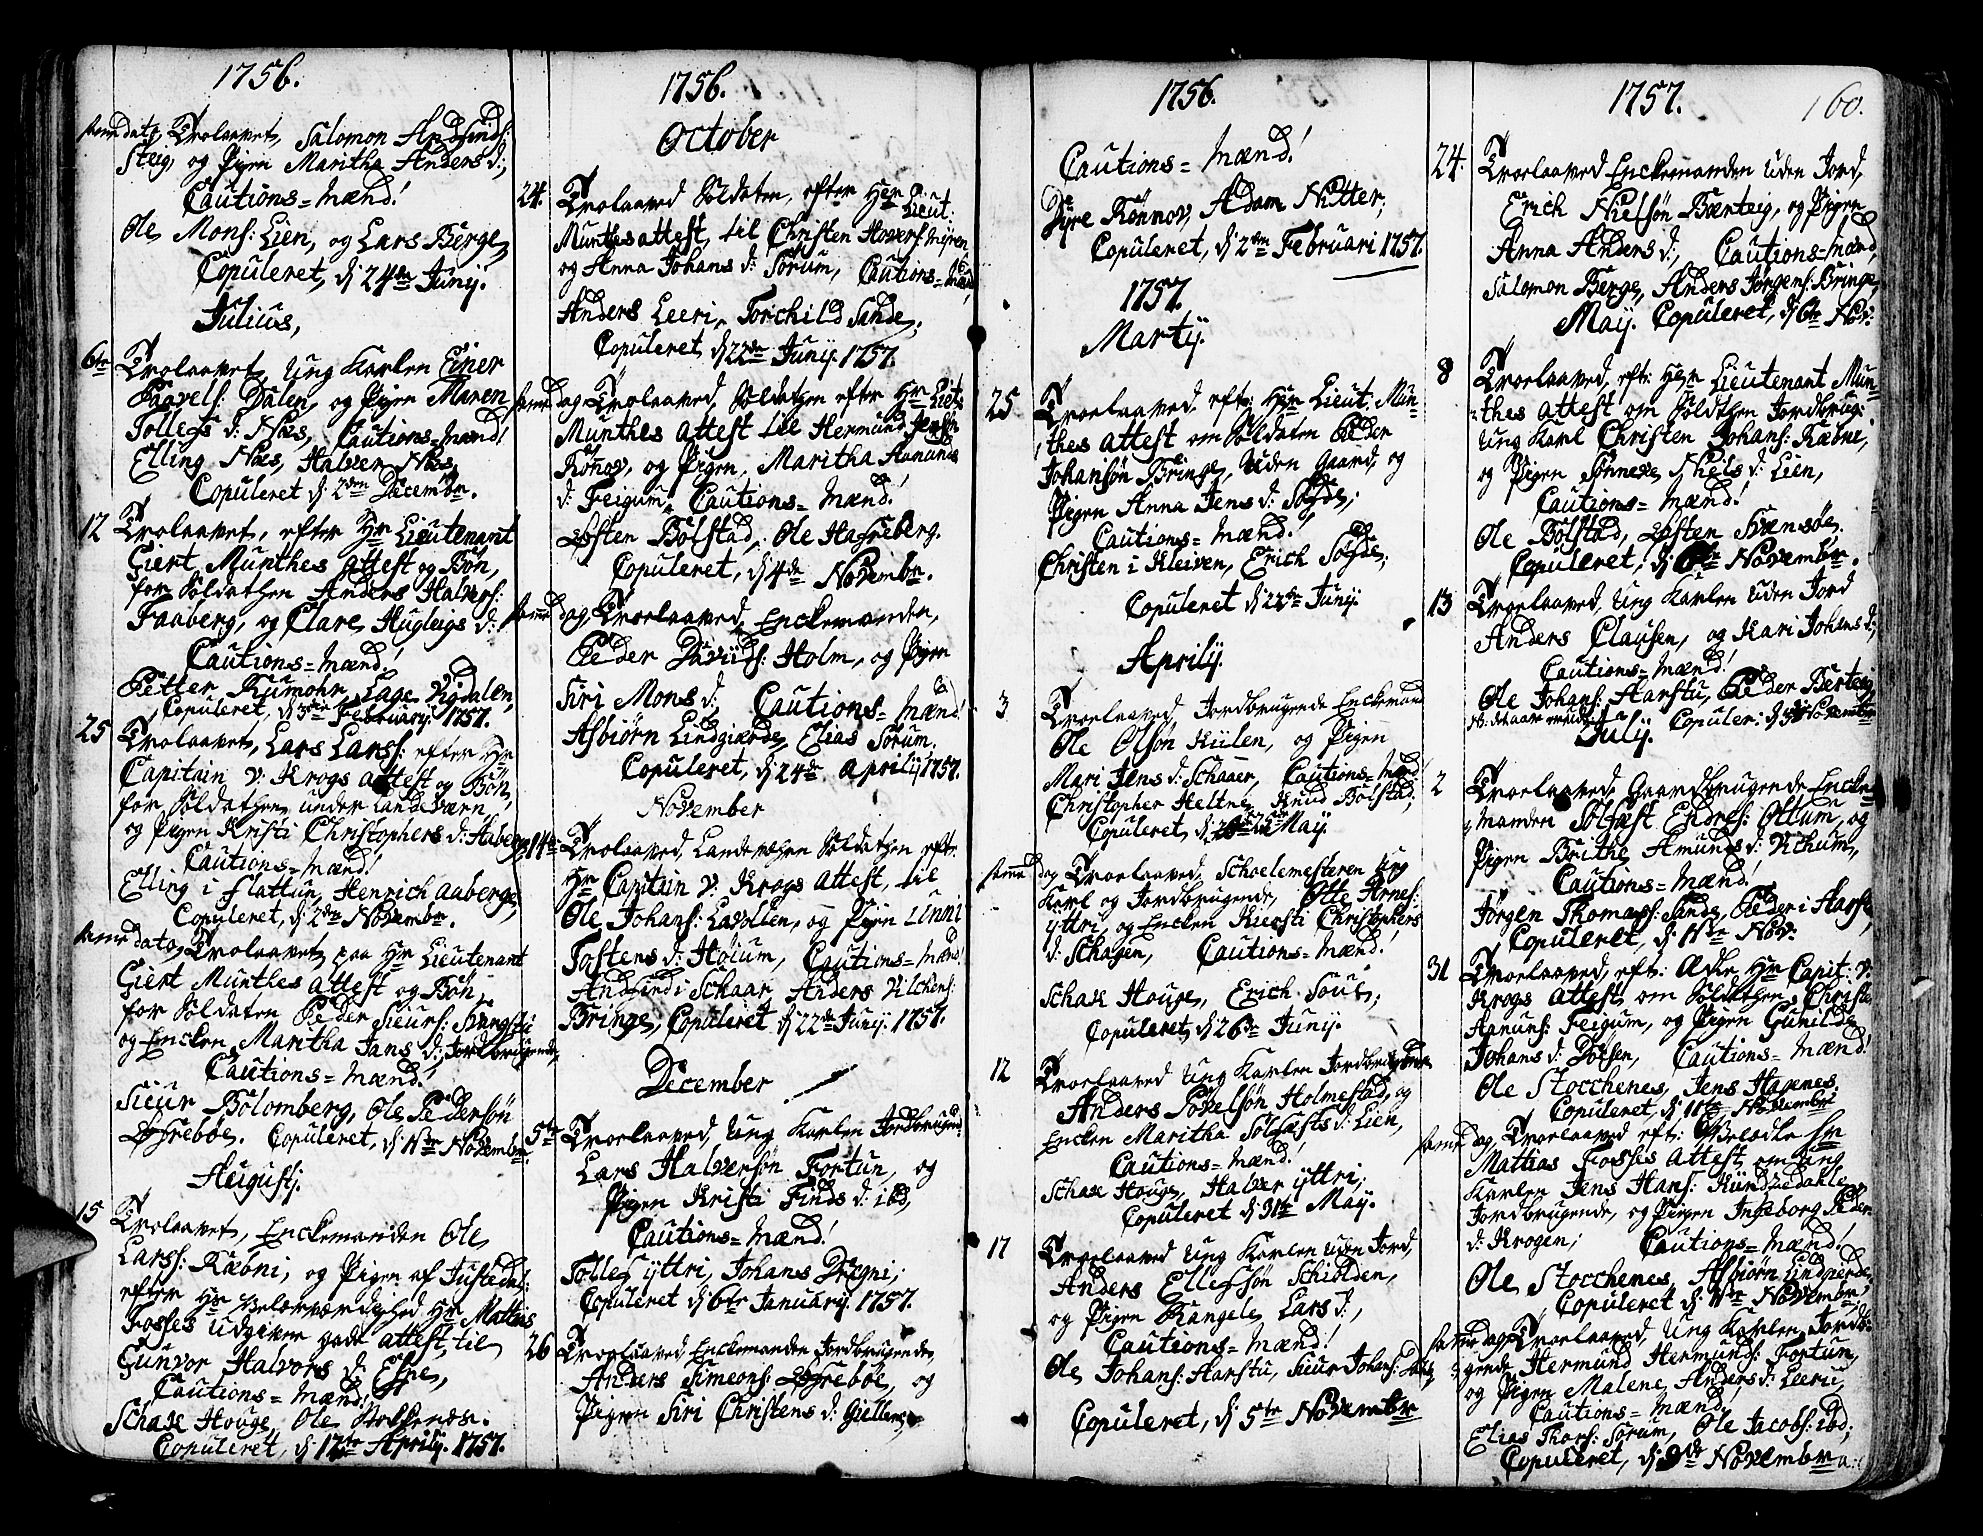 1756.
same dato, Trolaavet, Salomon Andfinds:
Steig, og Pigen Maritha Anders d:,
Cautions=Mænd!
Ole Mons: Lien, og Lars Berge,
Copuleret, dj 24de Junij.
Julius,
6te Trolaavet, Ung Karlen Einer
Paavels: Dalen, og Pigen Maren
Tollefs d: Næs, Cautions=mænd!
Elling Næs, Halver Næs,
Copuleret dj 2den Decembr.
12 Trolaavet, efter Hr Lieutenant
Giert Munthes attest og Bøn,
for Soldathen Anders Halvers:
Faaberg, og Clare Hugleigs d:
Cautions=Mænd!
Petter Kumohr, Lage Vigdalen,
Copuleret, dj 3die February 1757.
25 Trolaavet, Lars Larss: efter Hr
Capitain v: Krogs attest og Bøn,
for Soldathen under Landeværn,
og Pigen Kristi Christophers d: Haberge,
Cautions=mænd!
Elling i Flattun, Henrich Auberge,
Copuleret, dj 2den Novembr.
same dato, Trolaavet paa Hr Lieutenant
Giert Munthes attest og Bøn,
for Soldaten Peder Sieurs:
og Encken Maritha Jans d: Jordbrugende,
Cautions=Mænd!
Sieur Bolomberg, Ole Pedersøn
Øfrebøe. Copuleret, dj 11te Novembr.
Augustj.
15 Trolaavet, Enckemanden Ole
Larss: Ræbni, og Pigen af Justedal:
efter Hr Velærværdighed Hr Mattis
Fosses udgiven gode attest, til
Gunvor Halvors d: Espe,
Cautions=Mænd!
Schak Houge, Ole
Copuleret, dj 17te Aprilij. 1757.
1756.
October
24. Trolaaved Soldaten, efter Hr Lieut:
Munthes attest, til Christen Hovers: Myren
og Anna Johans d: Sorum, Cautions=Mænd,
Anders Leeri, Torchild Sande,
Copuleret dj 22de Junij. 1757.
same dag Trolaaved, Soldathen efter Hr Liet:
Munthes attest til Hermund Jensøn
Rønnov, og Pigen, Maritha Aamunds
d: Feigum, Cautions=Mænd!
Østen Bolstad, Ole Hafreberg.
Copuleret, dj 4de Novembr.
same dag Trolaaved, Enckemanden,
Peder Davids: Holm, og Pigen
Siri Mons d: Cautions=Mænd!
Asbiørn Lindgiærde, Elias Sorum.
Copuleret, dj 24de Aprilij 1757.
November
14de Trolaaved, Landeværn Soldathen efter
Hr Capitain v: Krogs attest, til
Ole Johans: Lavollen, og Pigen Linni
Tostens d: Høium, Cautions=Mænd!
Andfind i Schaar, Anders Vilchens:
Bringe, Copuleret dj 22de Junij. 1757.
December
5te Trolaaved, Ung Karlen Jordbrugend:
Lars Halversøn Fortun, og
Pigen Kristi Finds d: ibd,
Cautions=Mænd!
Tollef yttri, Johans Drægni,
Copuleret dj 6te Januarij. 1757.
26 Trolaaved Enckemanden Jordbrugende,
Anders Simeons: Øfrebøe, og
Pigen Siri Christens d: Giellen,
1756.
Cautions=Mænd!
Dyre Rønnov, Adam Nitter,
Copuleret, dj 2den Februari 1757.
1757.
Martij.
25 Trolaaved, eft: Hr Lieut. Mun-
thes attest om Soldaten Peder
Johansøn Bringe, uden Gaard, og
Pigen Anna Jens d: Sogde,
Cautions=Mænd!
Christen i Kleiven, Erich Sogde,
Copuleret dj 22de Junij.
Aprilij.
3 Trolaaved, Jordbrugende Enckemand
Ole Olsøn Kiilen, og Pigen
Mari Jens d: Schaaer, Cautions=Mænd!
Christopher Heltne, Knud Bolstad,
Copuleret, dj 25de May.
same dag Trolaaved, Schoelemesteren Ung
Karl og Jordbrugende, Otte Arnes:
yttri, og Encken Kiersti Christophers
d: Schagen, Cautions=Mænd!
Schak Houge, Erich
Copuleret, dj 26de Junij.
12 Trolaaved Ung Karlen Jordbrugende
Anders Povelsøn Holmestad, og
Encken Maritha Solfæsts d: Lien,
Cautions=Mænd!
Schak Houge, Halver yttri,
Copuleret dj 31te May.
17 Trolaaved Ung Karlen uden Jord,
Anders Ellefsøn Schiolden,
og Pigen Rangele Lars d:,
Cautions=Mænd!
Ole Johans: Harstu, Sieur Johans:
Copuleret, dj 5te Novembr
1757. 160.
24. Trolaaved Enckemanden uden Jord,
Erich Nielsøn Bærteig, og Pigen
Anna Anders d:, Cautions=Mænd,
Salomon Berge, Anders Jørgens: Bringe,
May. Copuleret, dj 6te Nov:
8 Trolaaved, eft: Hr Lieutenant Mun-
thes attest om Soldthen Jordbrug:
Ung Karl Christen Johans: Ræbni,
og Pigen Synneve Niels d: Lien,
Cautions=Mænd!
Ole Bolstad, Østen Svensøe,
Copuleret, dj Novembr.
13 Trolaaved, Ung Karlen uden Jord
Anders Clausen, og Kari Johans d:,
Cautions=Mænd!
Ole Johans: Harstu, Peder Berteig,
Copuler: dj Novembr
July.
2 Trolaaved, Gaardbrugende Encke-
manden Solfæst Endres: Ottum, og
Pigen Brithe Amunds d: Vichum,
Cautions=Mænd!
Jørgen Thomass: Sande, Peder i Harstu,
Copuleret, dj 11te Nov:
31 Trolaaved, eft: Ædle Hr Capit: v:
Krogs attest om Soldthen, Christen
Aanuns: Feigum, og Pigen Gunilde
Johans d: Døsen, Cautions=Mænd!
Ole Stocchenes, Jens Hagenes.
Copuleret, dj 11te Novembr
same dag, Trolaaved eft: Velædle Hr
Mattias Fosses attest, om Ung
Karlen Jens Hans:
Jordbrugende, og Pigen Ingeborg Peders
d: Krogen, Cautions=Mænd!
Ole Stocchenes, Asbiørn Lindgierde,
Copuleret dj 11te Novembr,
same dag, Trolaaved, Ung Karlen Jordb:
gende Hermund Hermunds: Fortun,
og Pigen Malene Anders d: Leeri,
Cautions=Mænd,
Elias Thors: Sorum, Ole Jacobs: ibd;
Copuleret, dj 9de Novembr